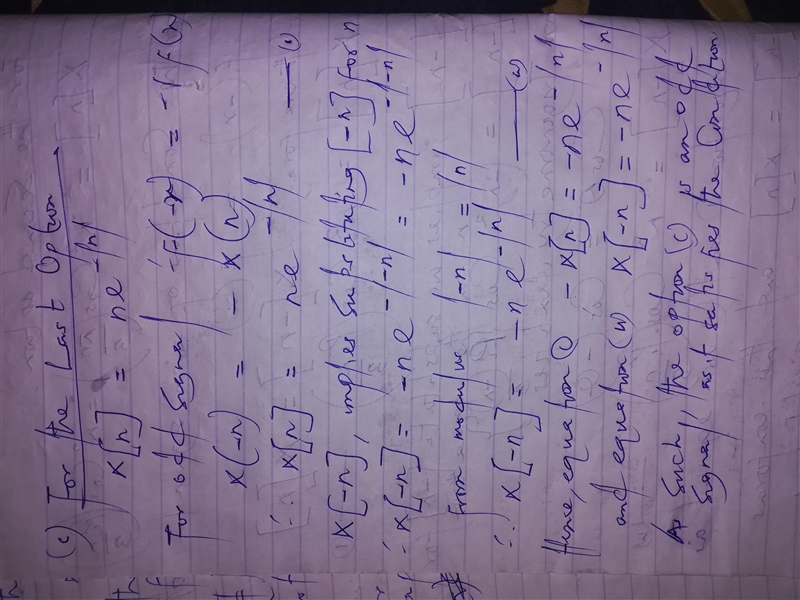 (c) For the Last Option
x[n] = ne^-|n|
For odd signal f(-x) = -f(x)
x(-n) = - x(n)
∴ x[n] = ne^-|n| —— (i)
x[-n], implies substituting [-n] for n
∴ x[-n] = -ne^-|-n| = -ne^-|-n|
from modulus |-n| = |n|
∴ x[-n] = -ne^-|n| —— (ii)
Hence, equation (i) - x[n] = -ne^-|n|
and equation (ii) x[-n] = -ne^-|n|
As such, the option (c) is an odd
signal, as it satisfies the Condition.